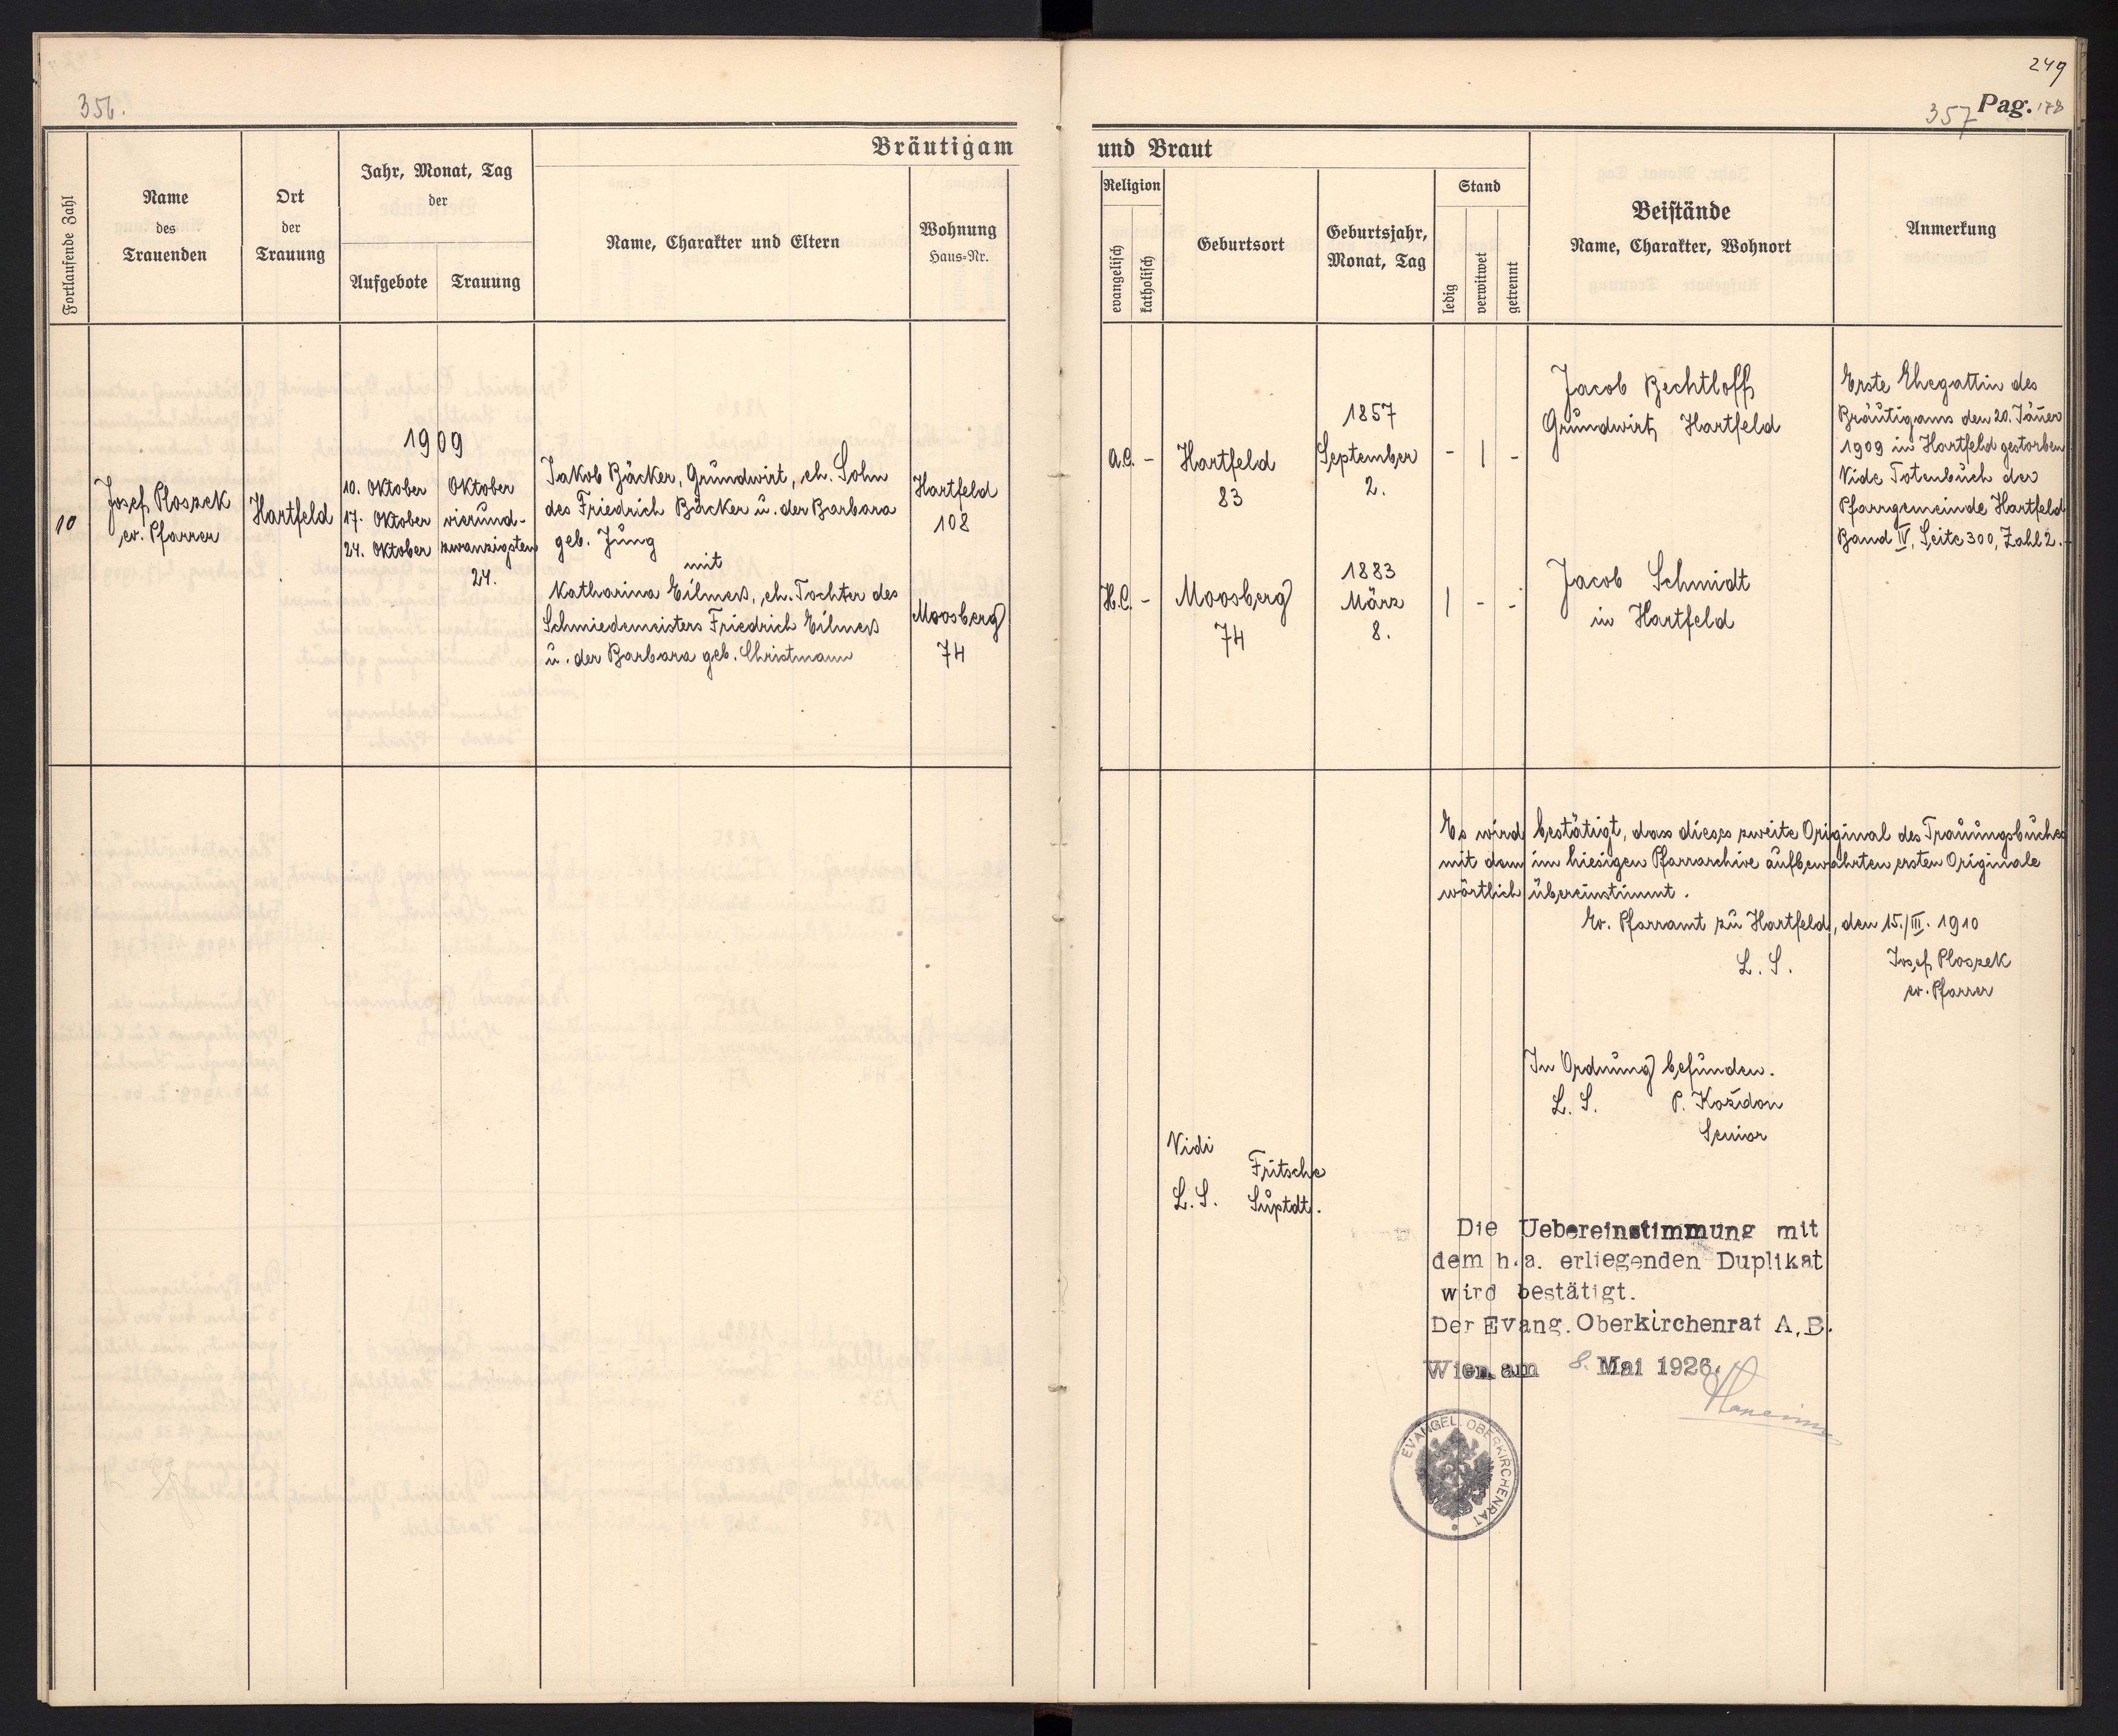 356.
249
357 Pag. 178
Bräutigam und Braut
Fortlaufende Zahl
Name
des
Trauenden
Ort
der
Trauung
Jahr, Monat, Tag
der
Aufgebote
Trauung
Name, Charakter und Eltern
Wohnung
Haus=Nr.
Religion
evangelisch
katholisch
Geburtsort
Geburtsjahr,
Monat, Tag
Stand
ledig
verwitwet
getrennt
Beistände
Name, Charakter, Wohnort
Anmerkung
10
Josef Ploszek
ev. Pfarrer
Hartfeld
1909
10. Oktober
17. Oktober
24. Oktober
Oktober
vierund-
zwanzigsten
24.
Jakob Bäcker, Grundwirt, eh. Sohn
des Friedrich Bäcker u. der Barbara
geb. Jung
mit
Katharina Eilmeß, eh. Tochter des
Schmiedemeisters Friedrich Eilmeß
u. der Barbara geb. Christmann
Hartfeld
108
Moosberg
74
A.C. -
Hartfeld
83
1857
September
2.
- | -
H.C. -
Moosberg
74
1883
März
8.
| - -
Jacob Bechtloff
Grundwirt, Hartfeld
Jacob Schmidt
in Hartfeld
Erste Ehegattin des
Bräutigams den 20. Jäner
1909 in Hartfeld gestorben
Vide Totenbuch der
Pfarrgemeinde Hartfeld
Band IV, Seite 300, Zahl 2.
Es wird bestätigt, dass dieses zweite Original des Trauungsbuches
mit dem im hiesigen Pfarrarchive aufbewahrten ersten Originale
wörtlich übereinstimmt.
Ev. Pfarramt zu Hartfeld, den 15./III. 1910
L. S.
Josef Ploszek
ev. Pfarrer
In Ordnung befunden.
L. S. P. Kożdoń
Senior
Vidi
Fritsche
L. S. Suptdt.
Die Uebereinstimmung mit
dem h.a. erliegenden Duplikat
wird bestätigt.
Der Evang. Oberkirchenrat A.B.
Wien am 8. Mai 1926.
EVANGEL. OBERKIRCHENRAT